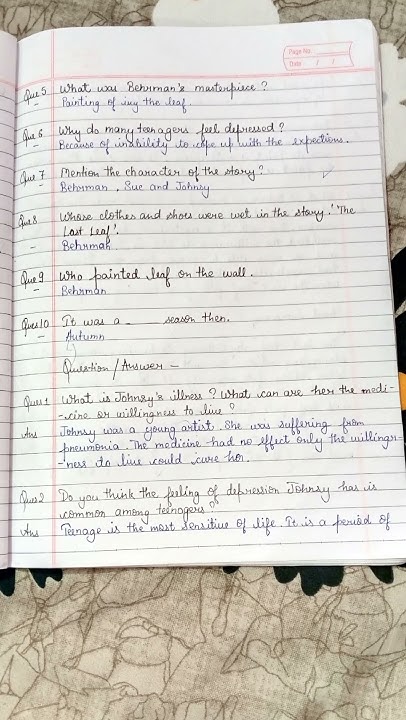 Page No.
Date / /
Que 5 What was Behrman's masterpiece?
Painting of ivy the leaf.
Que 6 Why do many teenagers feel depressed?
Because of inability to cope up with the expections.
Que 7 Mention the character of the story?
Behrman, Sue and Johnsy
Que 8 Whose clothes and shoes were wet in the story. 'The
Last Leaf'.
Behrman
Que 9 Who painted leaf on the wall.
Behrman
Ques 10 It was a ___ season then.
Autumn
Question/Answer -
Ques 1 What is Johnsy's illness? What can are her the medi-
-cine or willingness to live?
Ans Johnsy was a young artist. She was suffering from
pneumonia. The medicine had no effect only the willingn-
-ness to live could cure her.
Ques 2 Do you think the feeling of depression Johnsy has is
common among teenagers?
Ans Teenage is the most sensitive of life. It is a period of